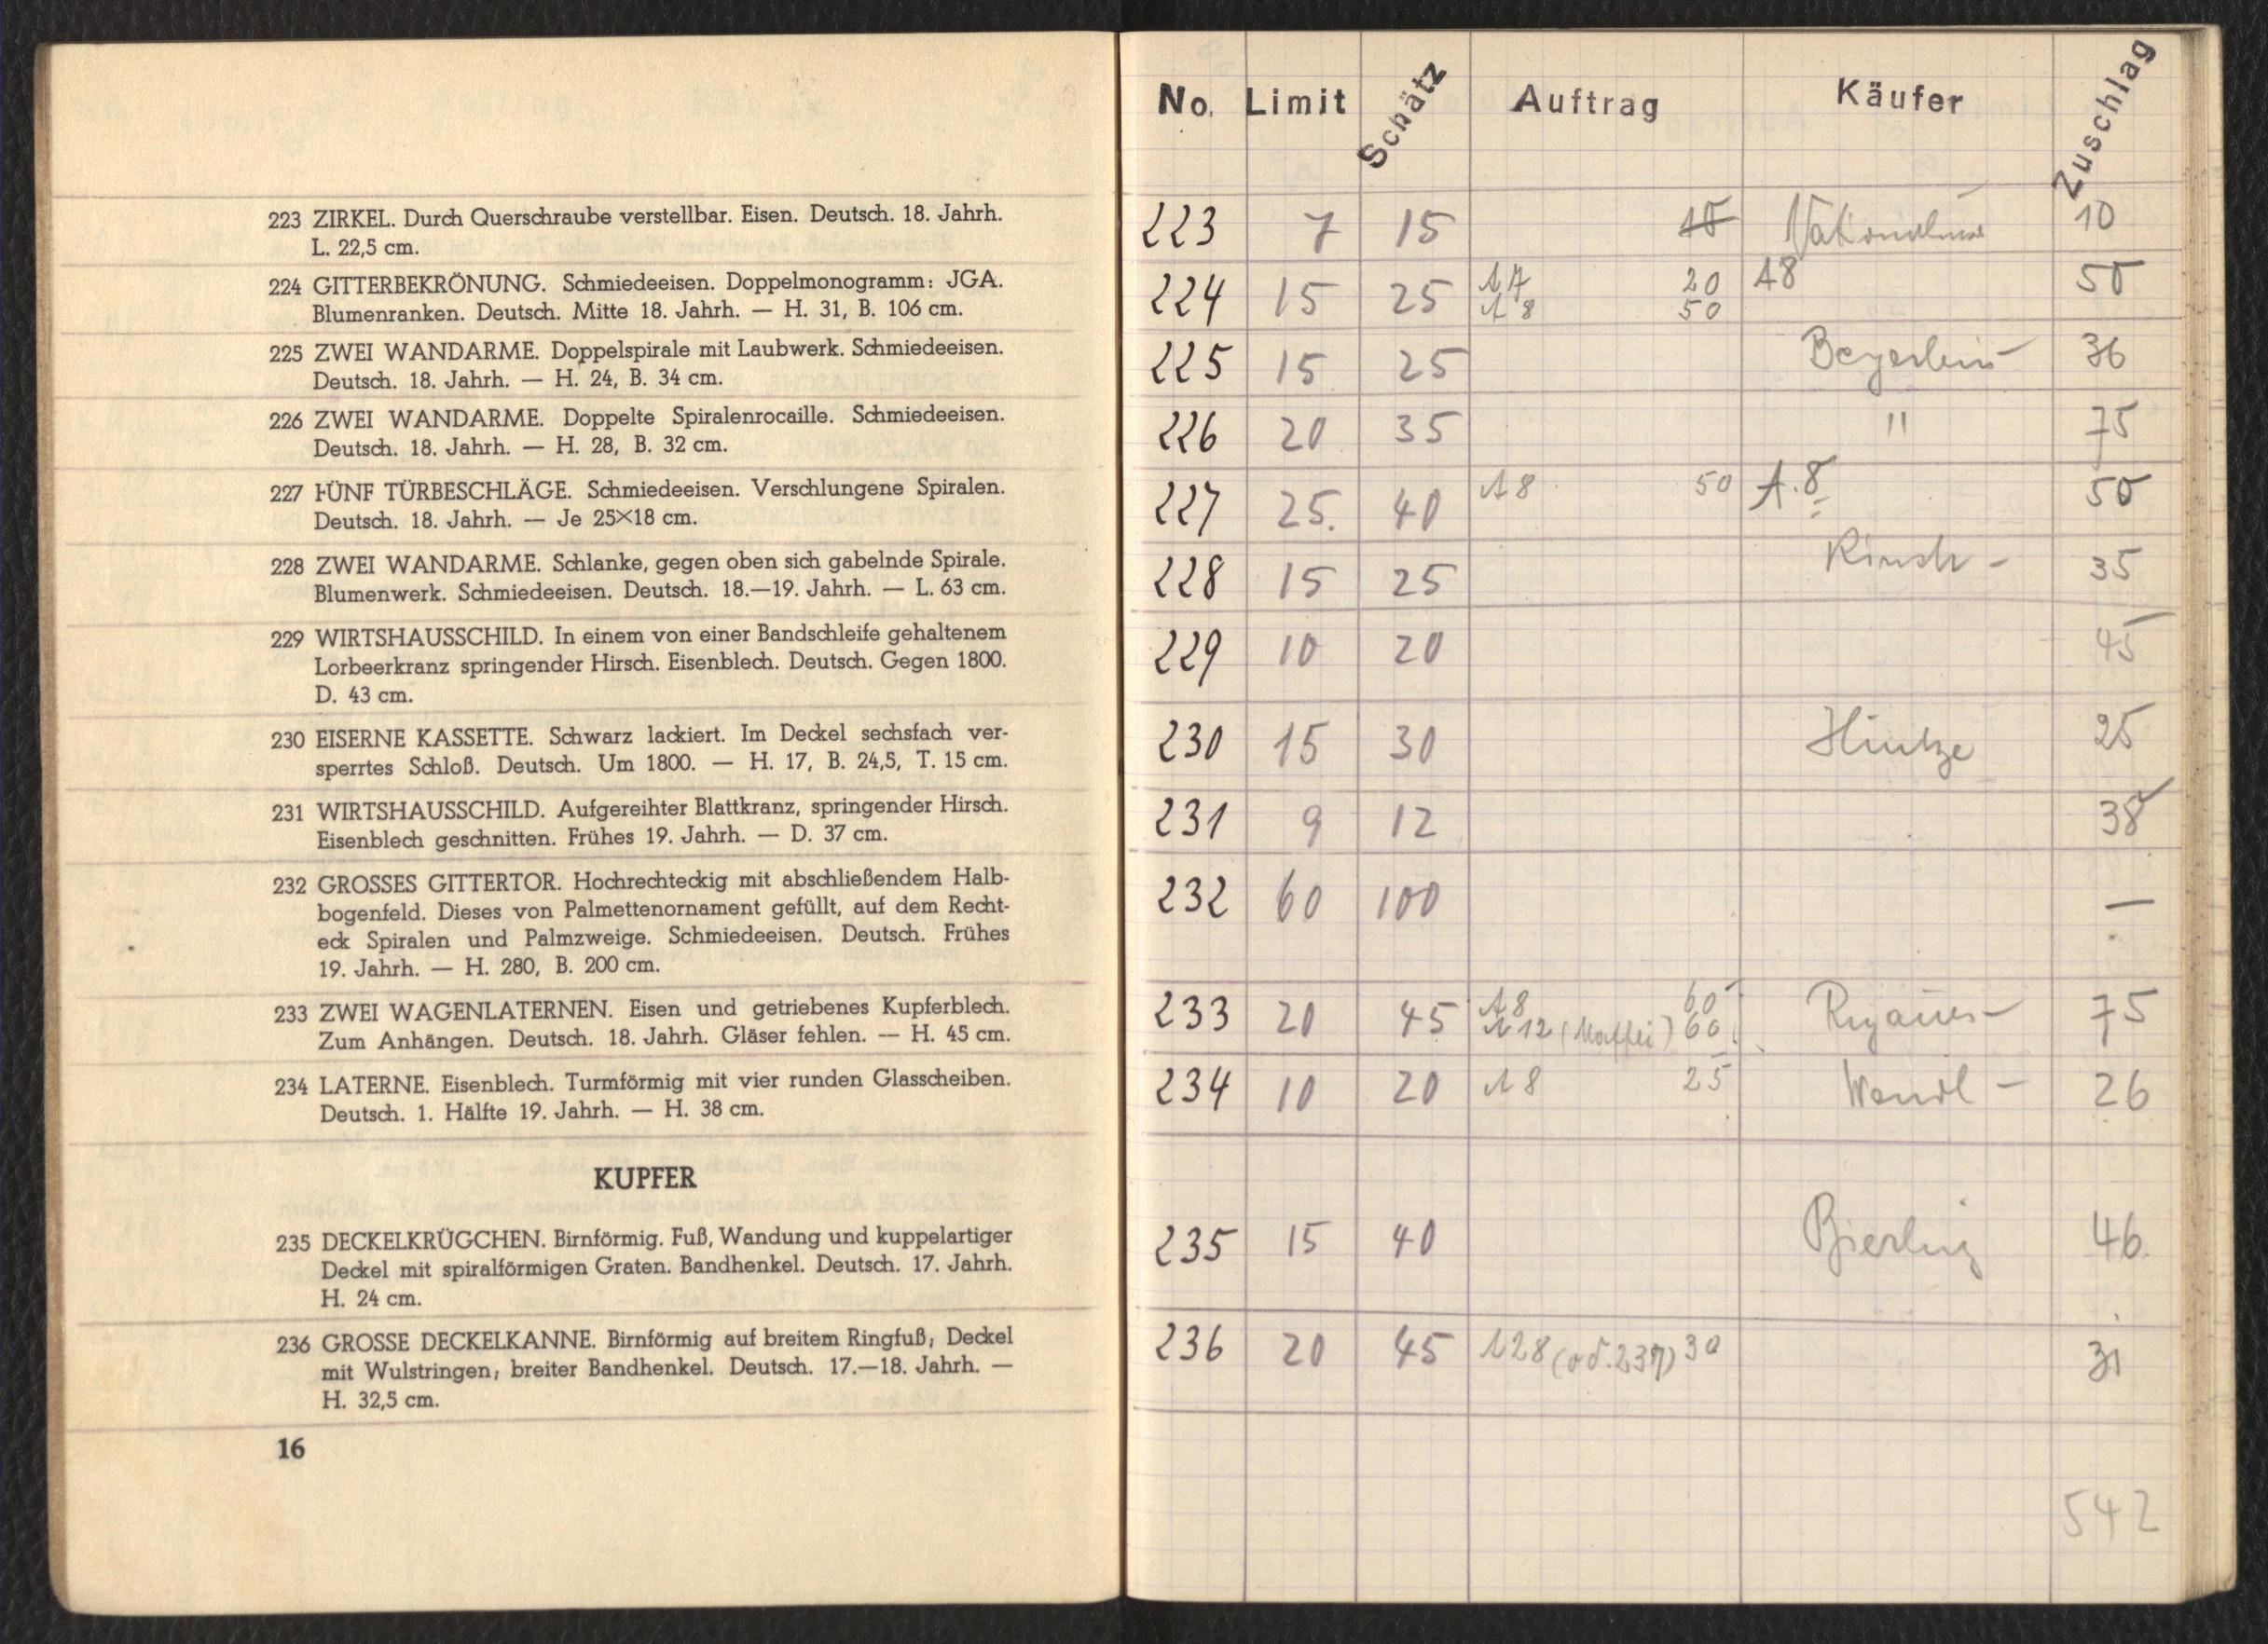 223 ZIRKEL. Durch Querschraube verstellbar. Eisen. Deutsch. 18. Jahrh.
L. 22,5 cm.
224 GITTERBEKRÖNUNG. Schmiedeeisen. Doppelmonogramm: JGA.
Blumenranken. Deutsch. Mitte 18. Jahrh. — H. 31, B. 106 cm.
225 ZWEI WANDARME. Doppelspirale mit Laubwerk. Schmiedeeisen.
Deutsch. 18. Jahrh. — H. 24, B. 34 cm.
226 ZWEI WANDARME. Doppelte Spiralenrocaille. Schmiedeeisen.
Deutsch. 18. Jahrh. — H. 28, B. 32 cm.
227 FÜNF TÜRBESCHLÄGE. Schmiedeeisen. Verschlungene Spiralen.
Deutsch. 18. Jahrh. — Je 25×18 cm.
228 ZWEI WANDARME. Schlanke, gegen oben sich gabelnde Spirale.
Blumenwerk. Schmiedeeisen. Deutsch. 18.—19. Jahrh. — L. 63 cm.
229 WIRTSHAUSSCHILD. In einem von einer Bandschleife gehaltenem
Lorbeerkranz springender Hirsch. Eisenblech. Deutsch. Gegen 1800.
D. 43 cm.
230 EISERNE KASSETTE. Schwarz lackiert. Im Deckel sechsfach ver-
sperrtes Schloß. Deutsch. Um 1800. — H. 17, B. 24,5, T. 15 cm.
231 WIRTSHAUSSCHILD. Aufgereihter Blattkranz, springender Hirsch.
Eisenblech geschnitten. Frühes 19. Jahrh. — D. 37 cm.
232 GROSSES GITTERTOR. Hochrechteckig mit abschließendem Halb-
bogenfeld. Dieses von Palmettenornament gefüllt, auf dem Recht-
eck Spiralen und Palmzweige. Schmiedeeisen. Deutsch. Frühes
19. Jahrh. — H. 280, B. 200 cm.
233 ZWEI WAGENLATERNEN. Eisen und getriebenes Kupferblech.
Zum Anhängen. Deutsch. 18. Jahrh. Gläser fehlen. — H. 45 cm.
234 LATERNE. Eisenblech. Turmförmig mit vier runden Glasscheiben.
Deutsch. 1. Hälfte 19. Jahrh. — H. 38 cm.
KUPFER
235 DECKELKRÜGCHEN. Birnförmig. Fuß, Wandung und kuppelartiger
Deckel mit spiralförmigen Graten. Bandhenkel. Deutsch. 17. Jahrh.
H. 24 cm.
236 GROSSE DECKELKANNE. Birnförmig auf breitem Ringfuß; Deckel
mit Wulstringen; breiter Bandhenkel. Deutsch. 17.—18. Jahrh. —
H. 32,5 cm.
16
No. Limit Schätz Auftrag Käufer Zuschlag
223 7 15 15 10
224 15 25 A 7 20 A8 50
A 8 50
225 15 25 Beyerlein 36
226 20 35 " 75
227 25. 40 A 8 50 A.8 50
228 15 25 35
229 10 20 45
230 15 30 Hintze 25
231 9 12 38
232 60 100 —
233 20 45 A 8 60 75
A 12 (Maffei) 60
234 10 20 A 8 25 Wendl — 26
235 15 40 Bierling 46.
236 20 45 A28 (od. 237) 30 31
542